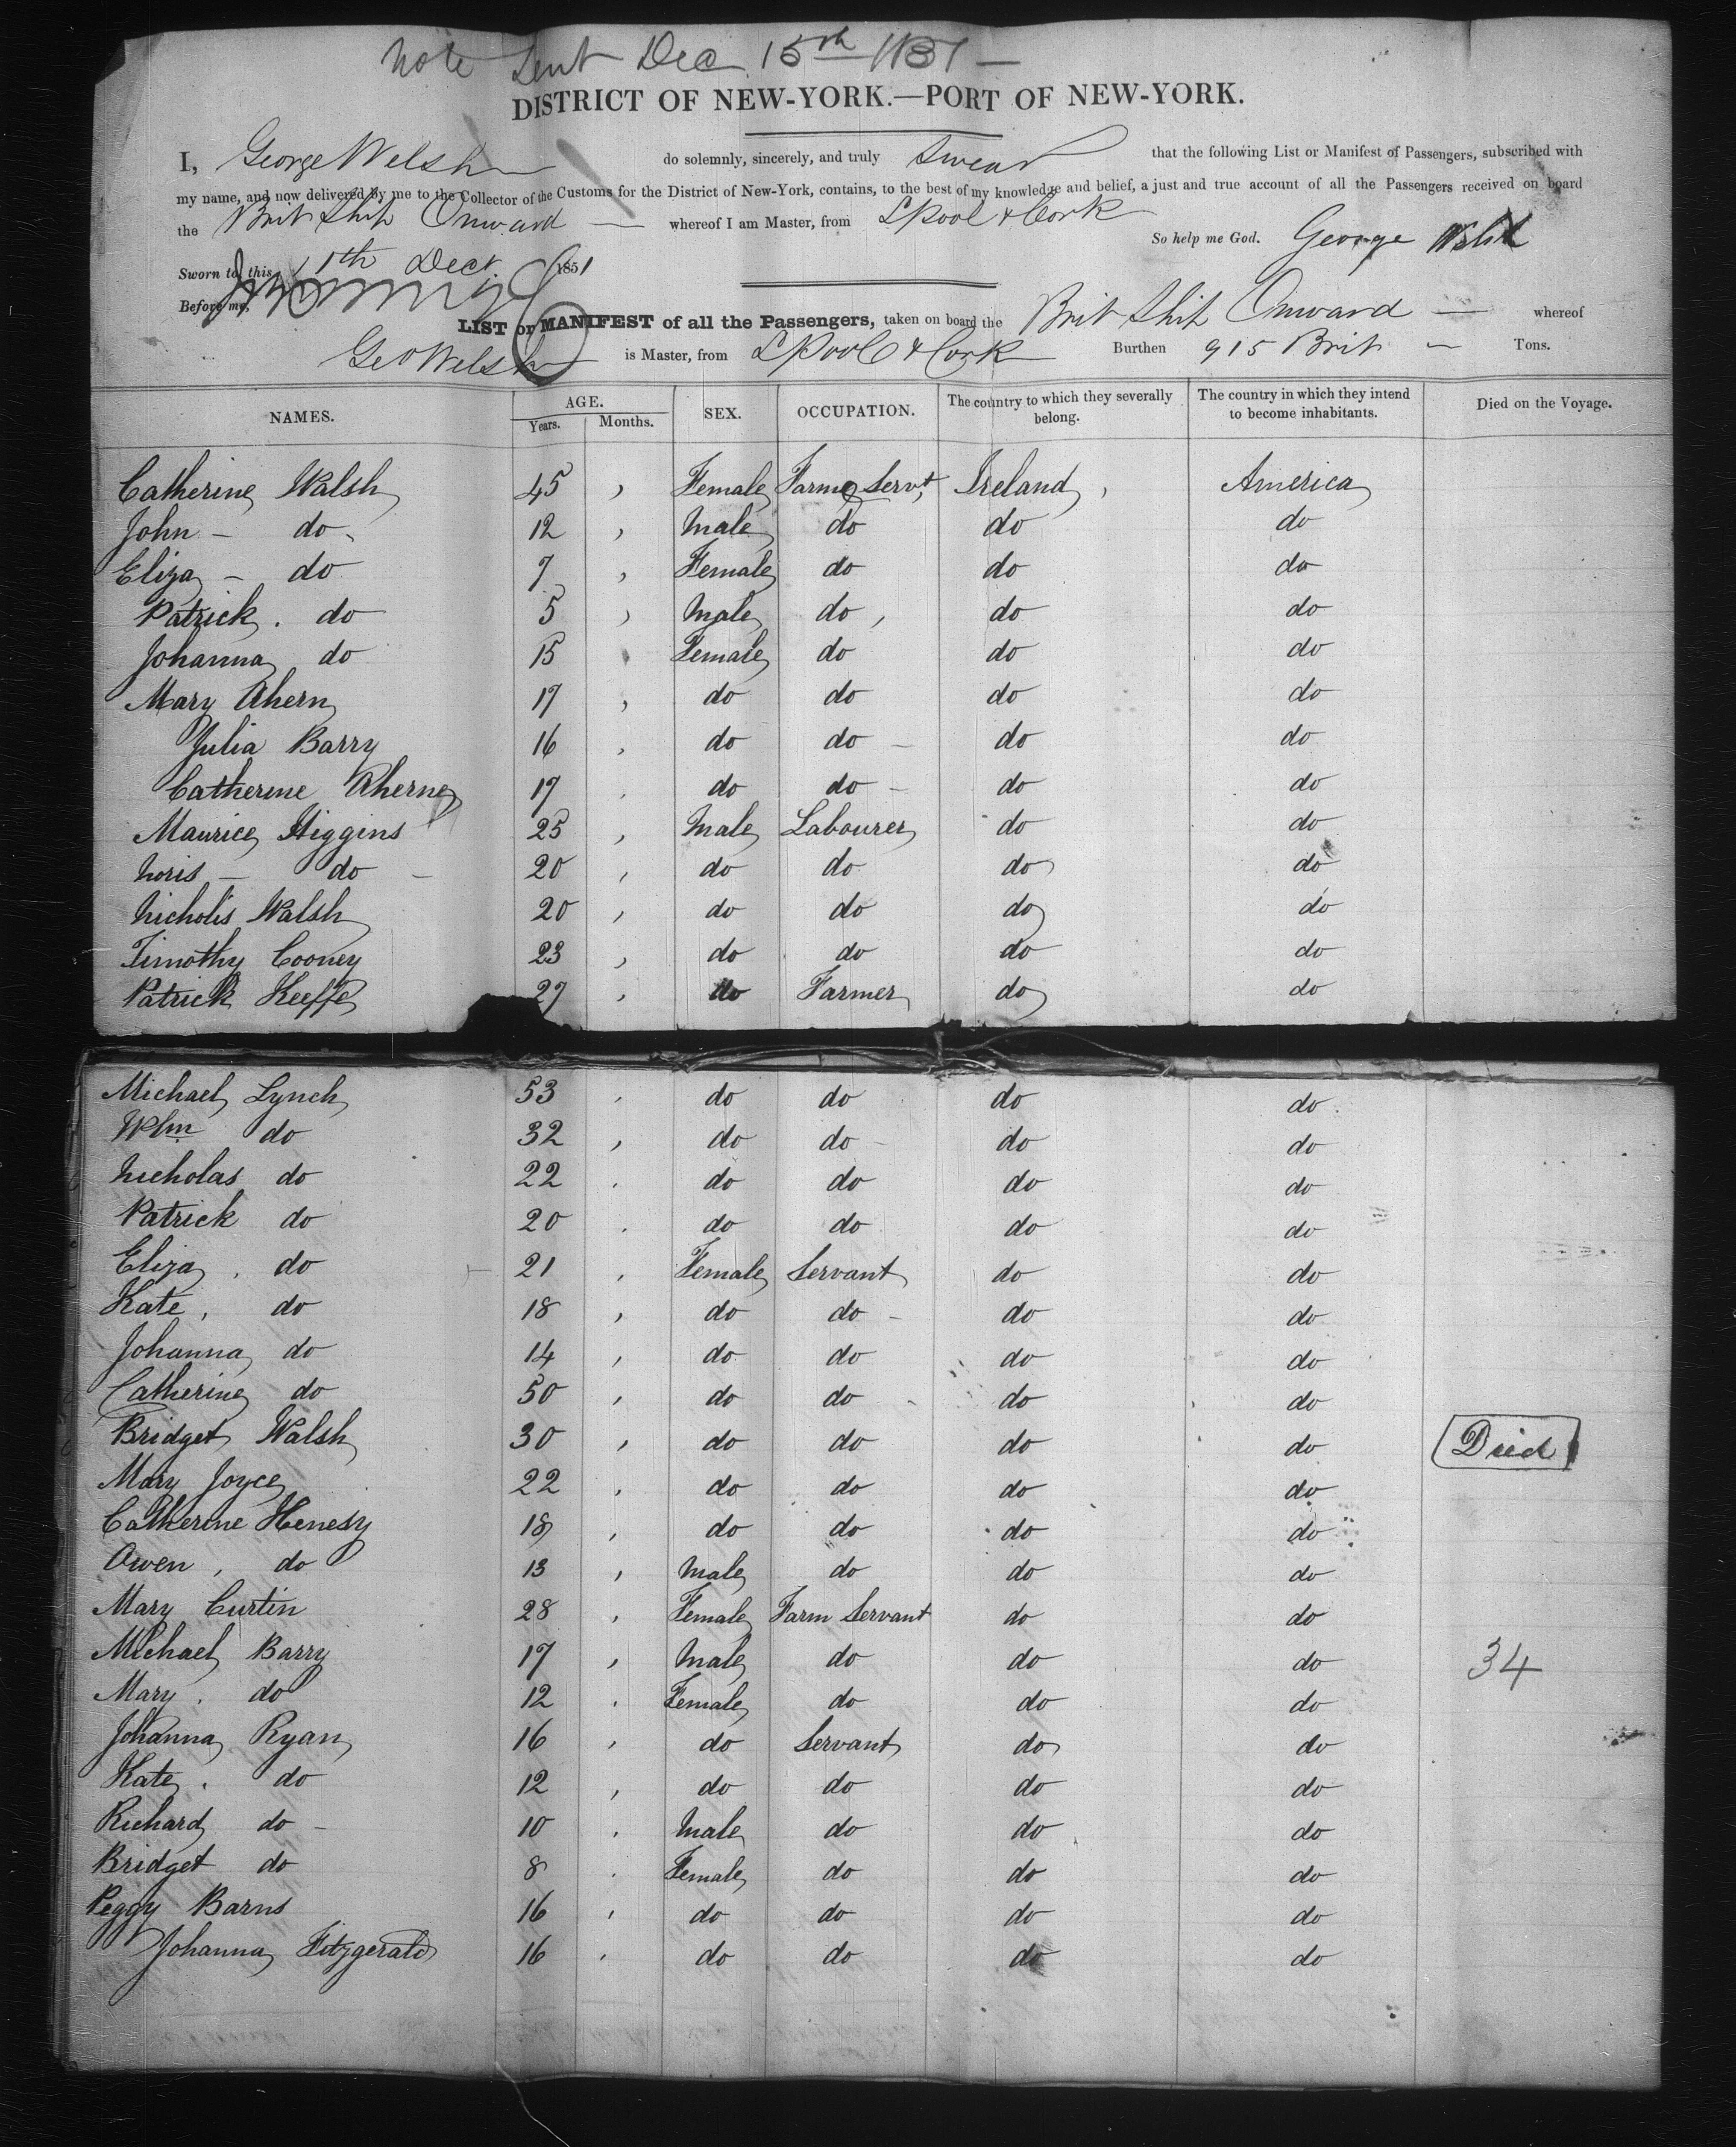 Note Sent Dec 15th 1851 —
DISTRICT OF NEW-YORK.—PORT OF NEW-YORK.
I, George Welsh do solemnly, sincerely, and truly Swear that the following List or Manifest of Passengers, subscribed with
my name, and now delivered by me to the Collector of the Customs for the District of New-York, contains, to the best of my knowledge and belief, a just and true account of all the Passengers received on board
the Brit Ship Onward — whereof I am Master, from LPool & Cork
So help me God. George Welsh
Sworn to, this 11th Decr. 1851
Before me,
LIST or MANIFEST of all the Passengers, taken on board the Brit Ship Onward — whereof
Geo Welsh is Master, from LPool & Cork Burthen 915 Brit — Tons.
NAMES. AGE. Years. Months. SEX. OCCUPATION. The country to which they severally belong. The country in which they intend to become inhabitants. Died on the Voyage.
Catherine Walsh 45 , Female Farm Servt, Ireland, America
John — do 12 , Male do do do
Eliza — do 7 , Female do do do
Patrick . do 5 , Male do , do do
Johanna do 15 , Female do do do
Mary Ahern 17 , do do do do
Julia Barry 16 , do do — do do
Catherine Aherne 17 . do do — do do
Maurice Higgins 25 , Male Labourer do do
Noris — do — 20 , do do do do
Nicholis Walsh 20 , do do do do
Timothy Cooney 23 , do do do do
Patrick Keeffe 27 , do Farmer do do
Michael Lynch 53 . do do do do
Wm do 32 , do do — do do
Nicholas do 22 . do do do do
Patrick do 20 . do do do do
Eliza , do 21 , Female Servant do do
Kate , do 18 , do do — do do
Johanna do 14 , do do do do
Catherine do 50 , do do do do
Bridget Walsh 30 , do do do do Died
Mary Joyce 22 , do do do do
Catherine Henesy 18 , do do do do
Owen , do 13 , Male do do do
Mary Curtin 28 , Female Farm Servant do do
Michael Barry 17 , Male do do do 34
Mary . do 12 . Female do do do
Johanna Ryan 16 , do Servant do do
Kate . do 12 , do do do do
Richard do — 10 . Male do do do
Bridget do 8 . Female do do do
Peggy Barns 16 , do do do do
Johanna Fitzgerald 16 . do do do do